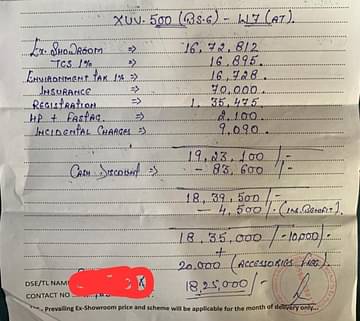 XUV-500 (BS-6) - W7 (AT).
Ex. SHOWROOM => 16,72,812
TCS 1% => 16,895.
ENVIRONMENT TAX 1% => 16,728.
INSURANCE => 70,000.
REGISTRATION => 1,35,475
HP + FASTAG. => 2,100.
INCIDENTAL CHARGES => 9,090.
19,23,100/-
CASH DISCOUNT => - 83,600/-
18,39,500/-
- 4,500/- (INS. BENEFIT)
18,35,000/- -10,000/-
+
20,000 (ACCESSORIES
DSE/TL NAME X 18,25,000/-
CONTACT NO
Prevailing Ex-Showroom price and scheme will be applicable for the month of delivery only..